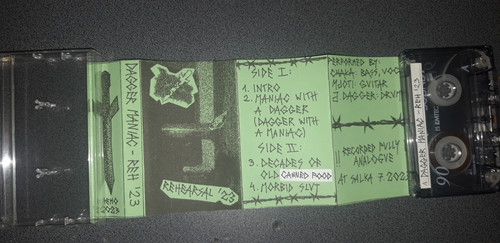 DAGGER MANIAC - REH '23
DEMO
2023
REHEARSAL '23
SIDE I:
1. INTRO
2. MANIAC WITH
A DAGGER
(DAGGER WITH
A MANIAC)
SIDE II:
3. DECADES OF
OLD CANNED FOOD
4. MORBID SLVT
PERFORMED BY:
BASS, VOC
GUITAR
DAGGER: DRVM
RECORDED FVLLY
ANALOGVE
AT SALKA 7.2023
A DAGGER MANIAC - REH '23
90